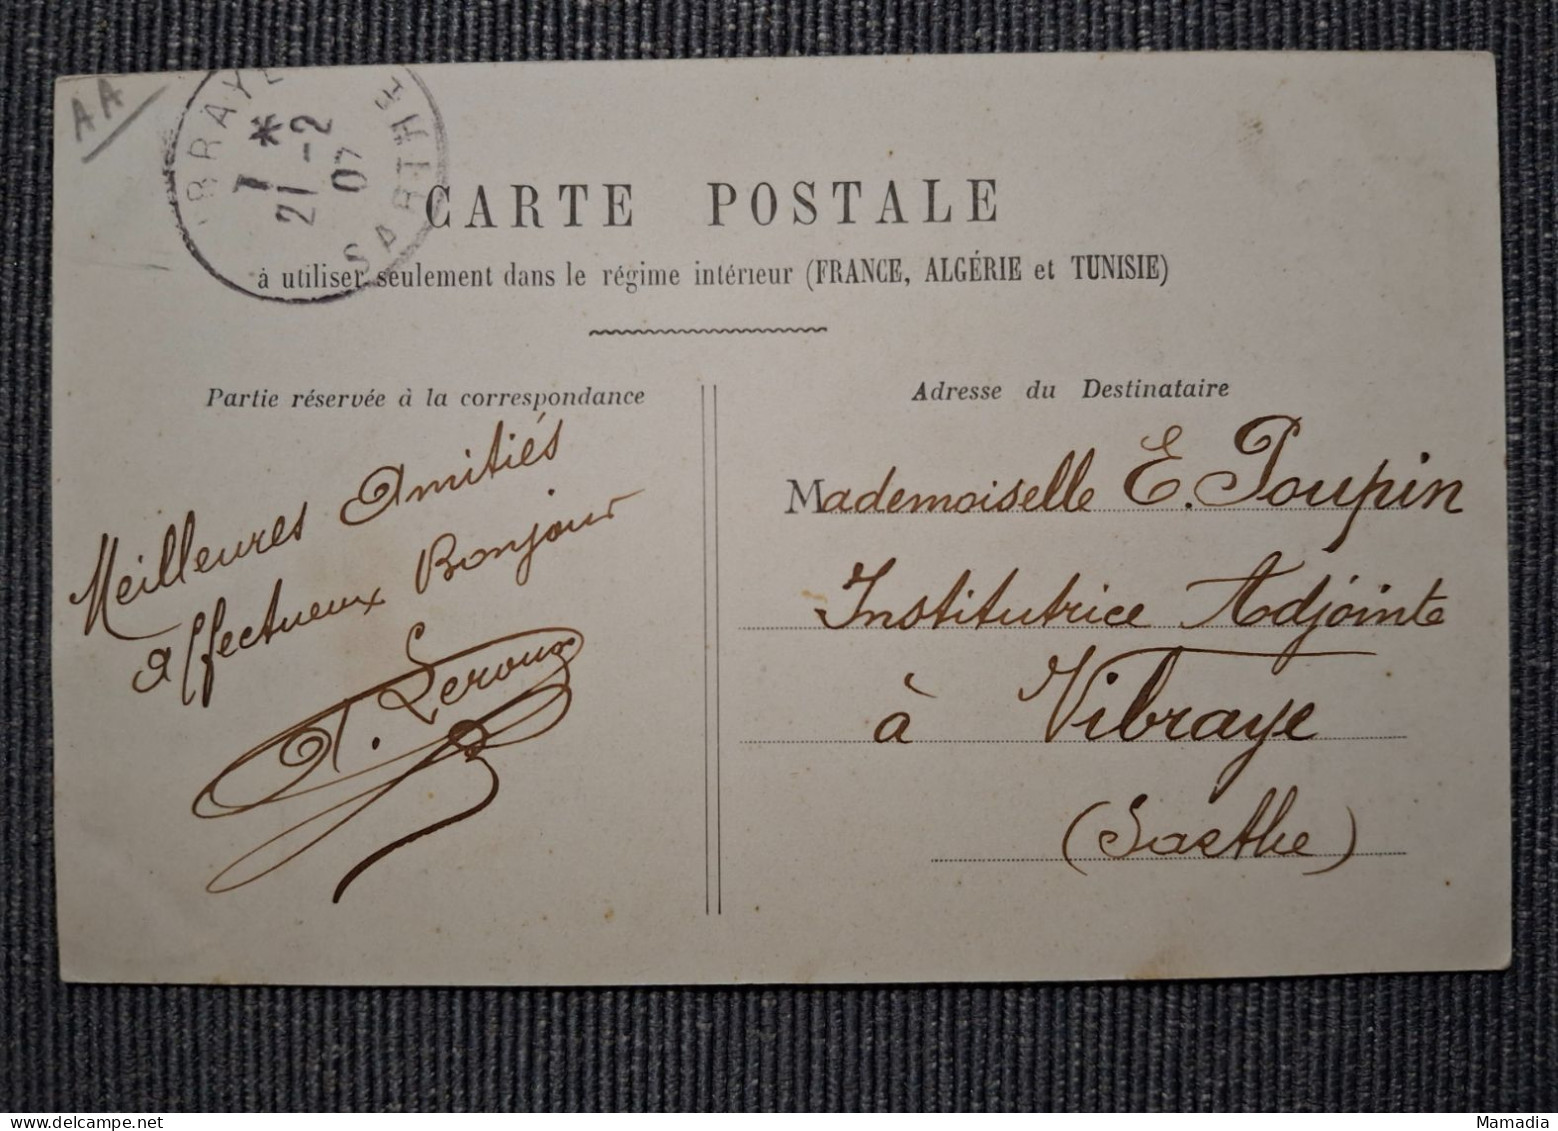 AA
BRAYE
7 *
21 -2
07
SARTHE
CARTE POSTALE
à utiliser seulement dans le régime intérieur (FRANCE, ALGÉRIE et TUNISIE)
Partie réservée à la correspondance
Meilleures Amitiés
affectueux Bonjour
A. Leroux
Adresse du Destinataire
Mademoiselle E. Poupin
Institutrice Adjointe
à Vibraye
(Sarthe)
Mamadia